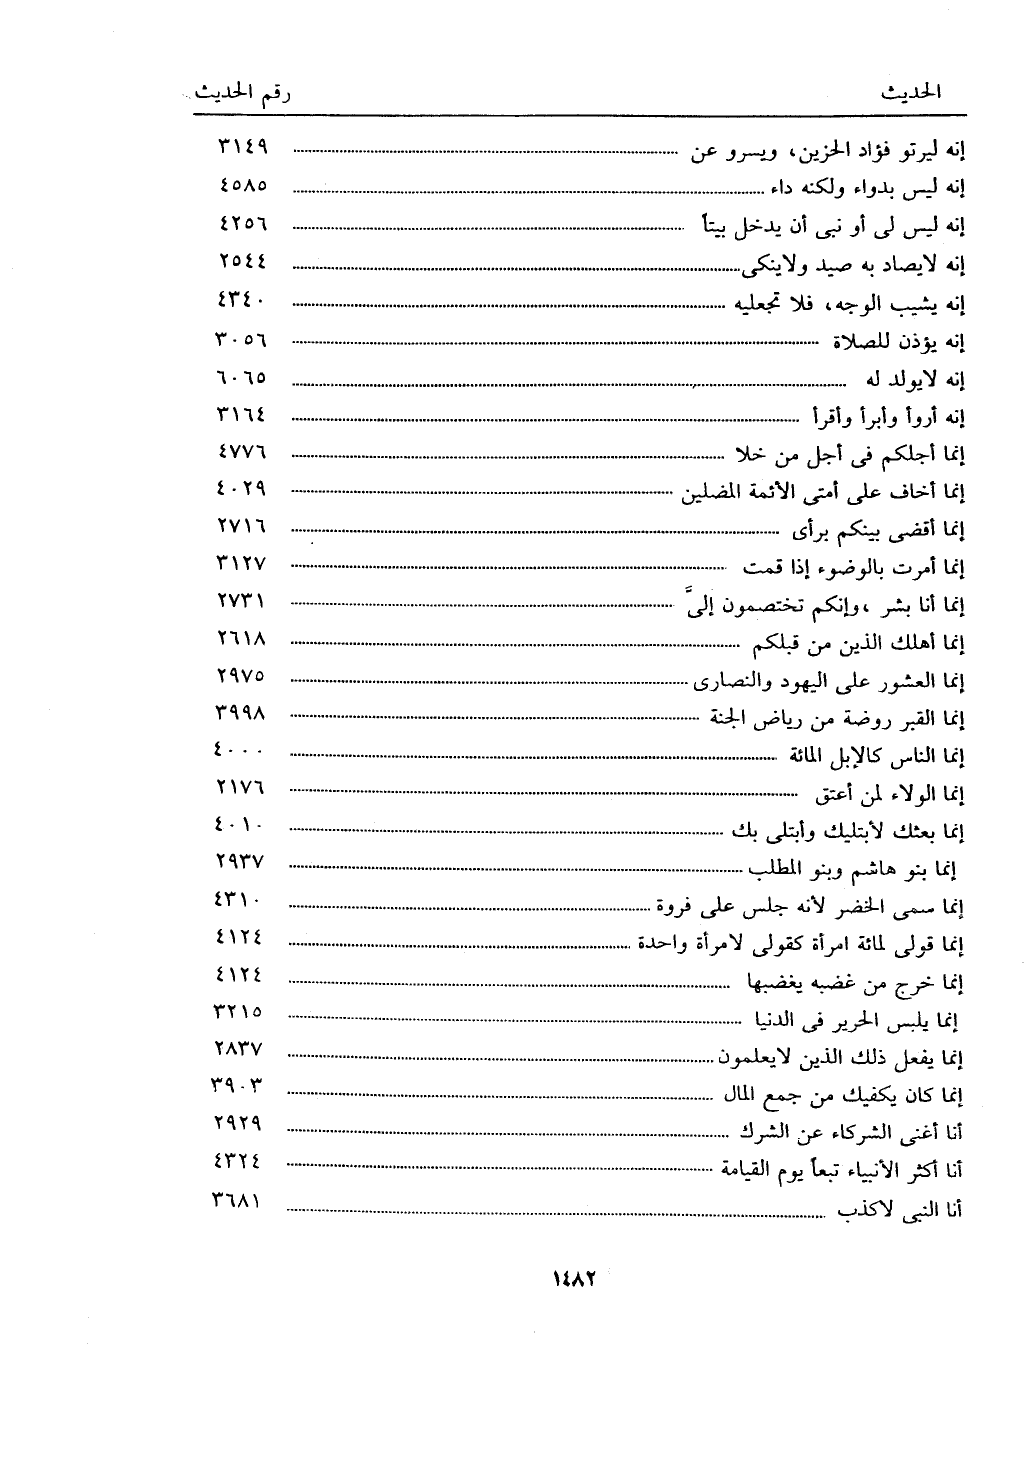 الحديث رقم الحديث
إنه ليرتو فؤاد الحزين، ويسرو عن ٣١٤٩
إنه ليس بدواء ولكنه داء ٤٥٨٥
إنه ليس لى أو نبى أن يدخل بيتاً ٤٢٥٦
إنه لايصاد به صيد ولاينكى ٢٥٤٤
إنه يشيب الوجه، فلا تجعليه ٤٣٤٠
إنه يؤذن للصلاة ٣٠٥٦
إنه لايولد له ٦٠٦٥
إنه أروأ وأبرأ وأقرأ ٣١٦٤
إنما أجلكم فى أجل من خلا ٤٧٧٦
إنما أخاف على أمتى الأئمة المضلين ٤٠٢٩
إنما أقضى بينكم برأى ٢٧١٦
إنما أمرت بالوضوء إذا قمت ٣١٢٧
إنما أنا بشر ،وإنكم تختصمون إلىَّ ٢٧٣١
إنما أهلك الذين من قبلكم ٢٦١٨
إنما العشور على اليهود والنصارى ٢٩٧٥
إنما القبر روضة من رياض الجنة ٣٩٩٨
إنما الناس كالإبل المائة ٤٠٠٠
إنما الولاء لمن أعتق ٢١٧٦
إنما بعثك لأبتليك وأبتلى بك ٤٠١٠
إنما بنو هاشم وبنو المطلب ٢٩٣٧
إنما سمى الخضر لأنه جلس على فروة ٤٣١٠
إنما قولى لمائة امرأة كقولى لامرأة واحدة ٤١٢٤
إنما خرج من غضبه يغضبها ٤١٢٤
إنما يلبس الحرير فى الدنيا ٣٢١٥
إنما يفعل ذلك الذين لايعلمون ٢٨٣٧
إنما كان يكفيك من جمع المال ٣٩٠٣
أنا أغنى الشركاء عن الشرك ٢٩٢٩
أنا أكثر الأنبياء تبعاً يوم القيامة ٤٣٢٤
أنا النبى لاكذب ٣٦٨١
١٤٨٢